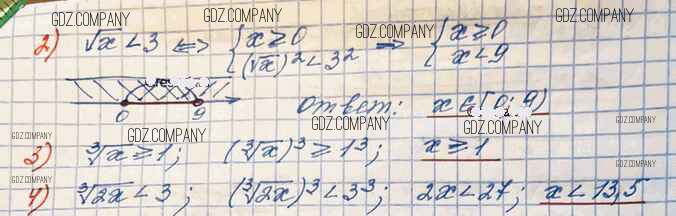 GDZ.COMPANY GDZ.COMPANY GDZ.COMPANY
2) √x < 3 <=> { x ≥ 0 => { x ≥ 0
(√x)² < 3² x < 9
0 9 Ответ: x ∈ [0; 9)
GDZ.COMPANY GDZ.COMPANY GDZ.COMPANY GDZ.COMPANY
3) ∛x ≥ 1; (∛x)³ ≥ 1³; x ≥ 1
GDZ.COMPANY GDZ.COMPANY
4) ∛2x < 3; (∛2x)³ < 3³; 2x < 27; x < 13,5